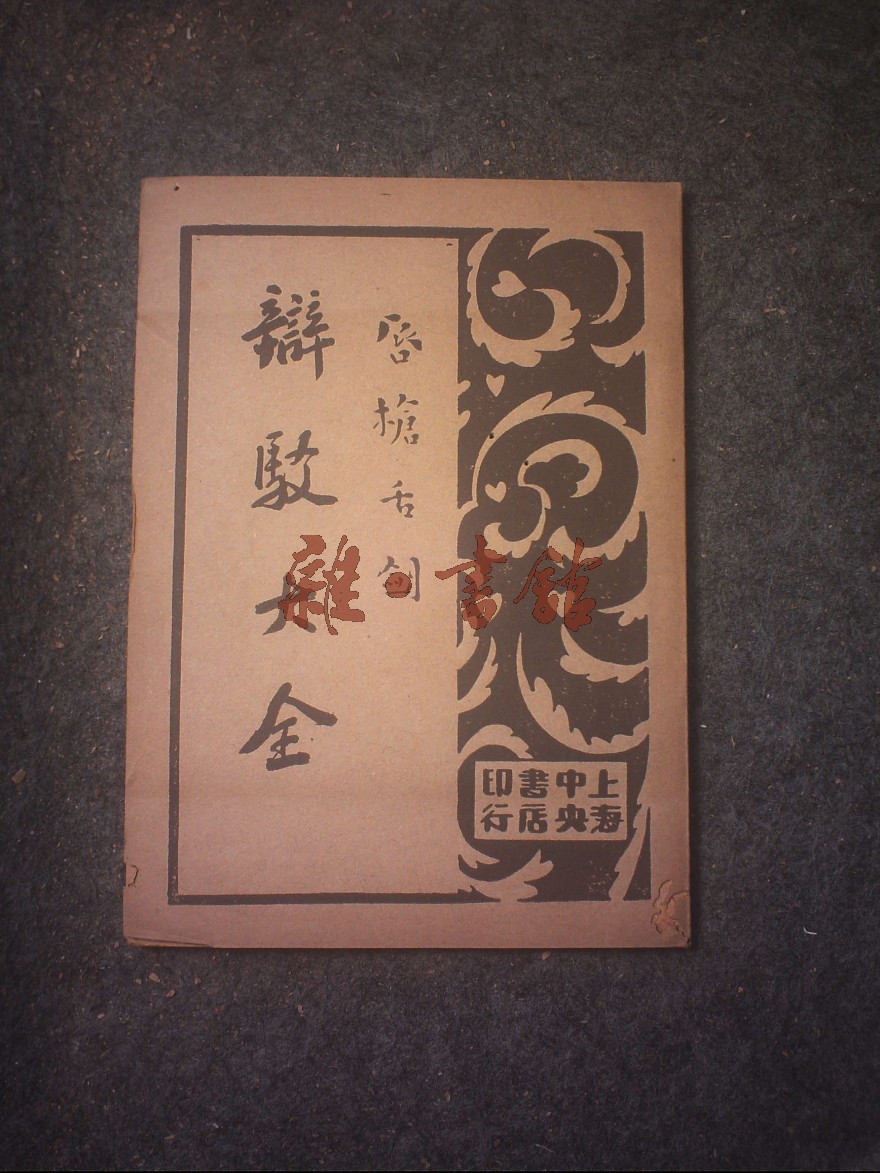 唇槍舌劍
辯駁大全
上海
中央
書店
印行
雜·書館